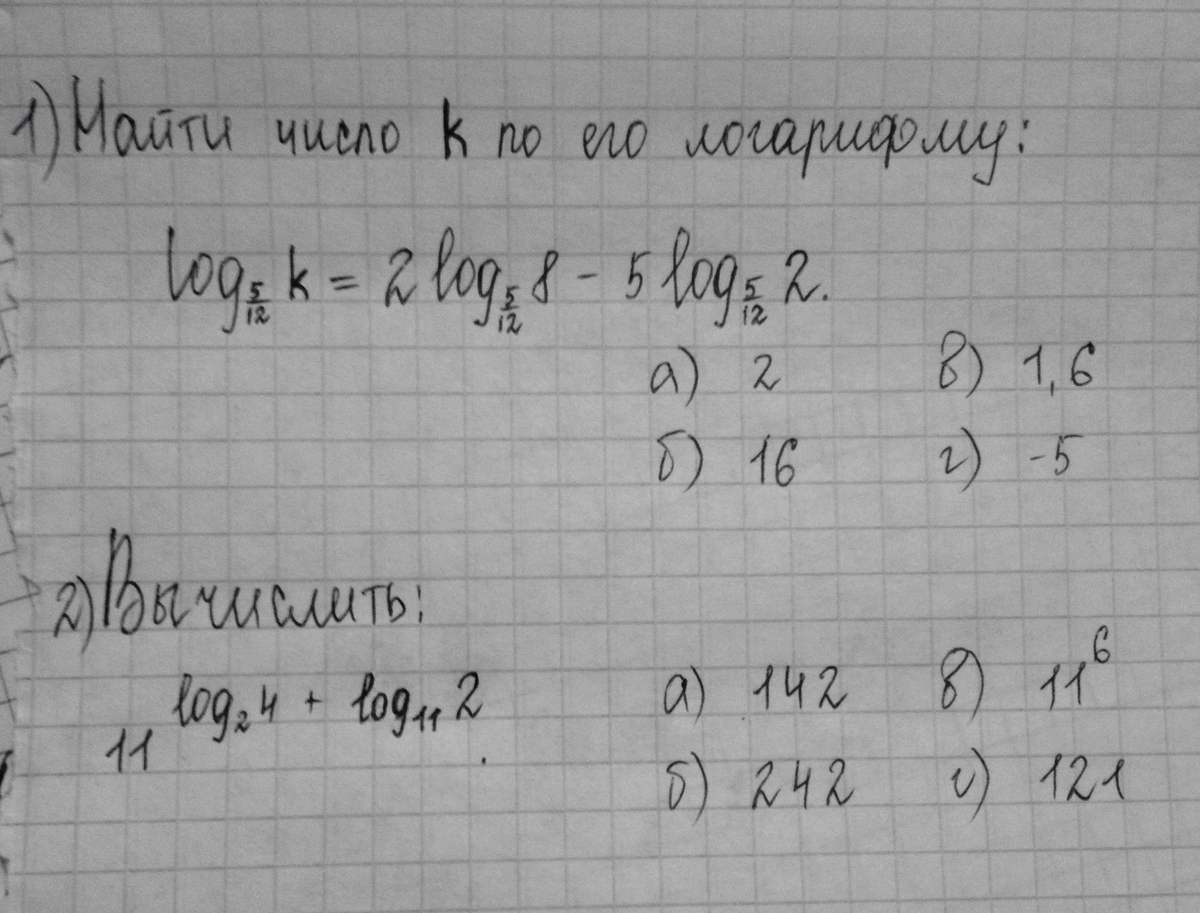 1) Найти число k по его логарифму:
log_{5/12} k = 2 log_{5/12} 8 - 5 log_{5/12} 2.
а) 2 в) 1,6
б) 16 г) -5
2) Вычислить:
11^{log_2 4 + log_{11} 2}.
а) 142 в) 11^6
б) 242 г) 121